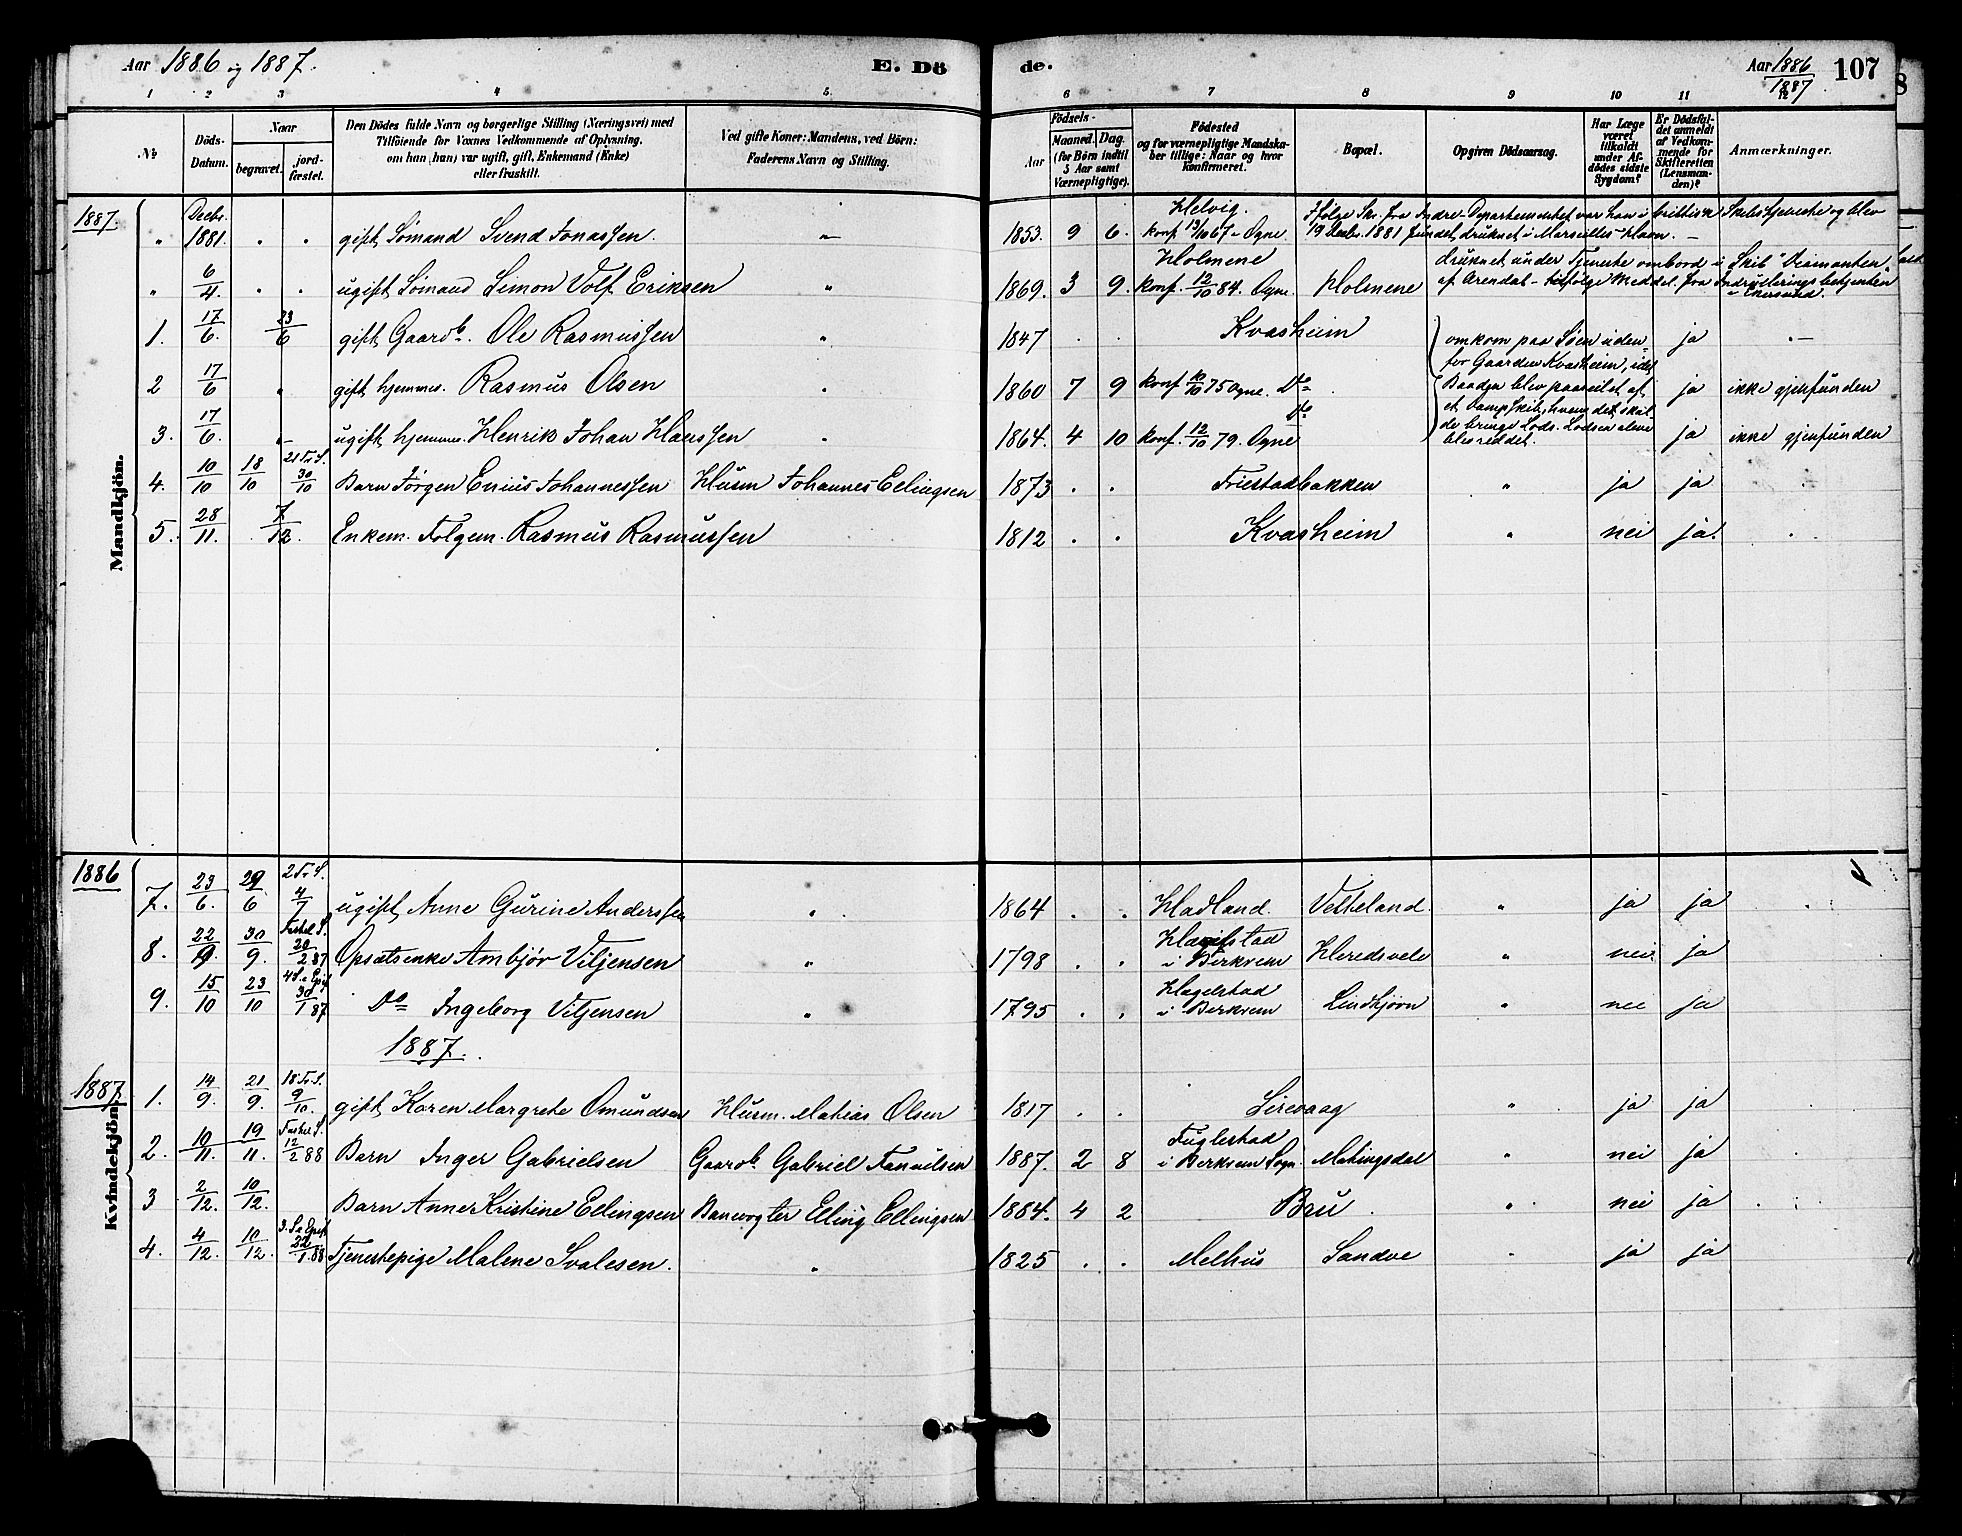 Aar 1886 og 1887. E. Döde. Aar 1886/1887 107
1 2 3 4 5 6 7 8 9 10 11 12
No. Döds-Datum. Naar begravet. jordfæstet. Den Dödes fulde Navn og borgerlige Stilling (Næringsvei) med Tilföiende for Voxnes Vedkommende af Oplysning, om han (hun) var ugift, gift, Enkemand (Enke) eller fraskilt. Ved gifte Koner: Mandens, ved Börn: Faderens Navn og Stilling. Födsels- Aar Maaned. Dag. (for Börn indtil 5 Aar samt Værnepligtige). Födested og for værnepligtige Mandskaber tillige: Naar og hvor konfirmeret. Bopæl. Opgiven Dödsaarsag. Har Læge været tilkaldt under Afdödes sidste Sygdom? Er Dödsfaldet anmeldt af Vedkommende for Skifteretten (Lensmanden)? Anmærkninger.
Mandkjön.
1887. " Decbr. 1881. " " gift Sømand Svend Jonassen. — 1853. 9 6. Helvig. konf 67 Ogne Ifølge Skr. fra Indre-Departementet var han i brittisk Skibstjeneste og blev 19 Decbr. 1881 fundet druknet i Marseilles Havn. —
" 6/4 " " ugift Sømand Simon Volf Eriksen " 1869. 3 9. Holmene konf. 12/10 84. Ogne Holmene druknet under Tjeneste ombord i Skib "Diamanten" af Arendal - tilfølge Meddel. fra
1. 17/6. 23/6 gift Gaardb. Ole Rasmussen " 1847 . . Kvasheim omkom paa Søen uden- ja —
2 17/6 " gift hjemmev. Rasmus Olsen " 1860 7 9 konf 75 Ogne. Do for Gaarden Kvasheim, idet Baaden blev paaseilet af ja ikke gjenfunden
3. 17/6. " ugift hjemmev. Henrik Johan Hanssen " 1864. 4 10 konf. 12/10 79. Ogne Do et Dampskib, hvem det skulde bringe Lods. Lodsen alene blev reddet. ja ikke gjenfunden
4. 10/10 18/10 21 Tr. S. 30/10 Barn Jørgen Enius Johannessen Husm Johannes Ellingsen 1873 . . Friestadbakken " ja ja
5. 28/11. 7/12. Enkem. Folgem. Rasmus Rasmussen 1812 . . Kvasheim " nei ja.
1886
7. 23/6. 29/6 2 Tr. S. 4/7 ugift Anne Gurine Anderssen " 1864 . . Hadland. Velteland. " ja ja
8. 22/9. 30/9. Fastel. S. 20/2 87 Opsatsenke Ambjør Viljensen " 1798 . . i Birkrem Heredsvele " nei ja
9. 15/10 23/10 4 S. e Epif 30/1 87 Do Ingeborg Viljensen " 1795 . . Hegelstad i Birkrem Lindtjørn " nei ja
1887.
Kvindekjön.
1887. 1. 14/9. 21/9. 18 Tr. S. 9/10. gift Karen Margrete Omundsen Husm. Mathias Olsen 1817 . . Sirevaag " ja ja
2. 10/11. 19/11. Fastel S. 12/2 88 Barn Inger Gabrielsen Gaardb. Gabriel Tønnesen 1887. 2 8 Fuglestad i Birkrem Sogn. Matingsdal " nei ja
3 2/12. 10/12. Barn Anne Kristine Ellingsen Banevogter Elling Ellingsen 1884. 4 2 Bru " nei ja
4. 4/12. 10/12. 3. S. e Epif. 22/1 88 Tjenestepige Malene Svalesen. " 1825 . . Melhus Sandve " ja ja